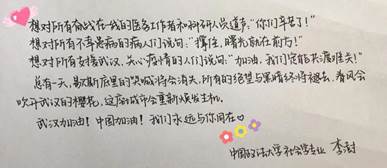 想对所有奋战在一线的医务工作者和所有人员道声:"你们辛苦了!"
想对所有不幸患病的病人们说句:"撑住,曙光就在前方!"
想对所有支援武汉、关心疫情的人们说句:"加油,我们定能共渡难关!"
总有一天,歇斯底里的哭喊将会消失,所有的绝望与黑暗终将褪去,春风会
吹开武汉的樱花,这座城市会重新焕发生机。
武汉加油!中国加油!我们永远与你同在
中国政法大学社会学专业 李